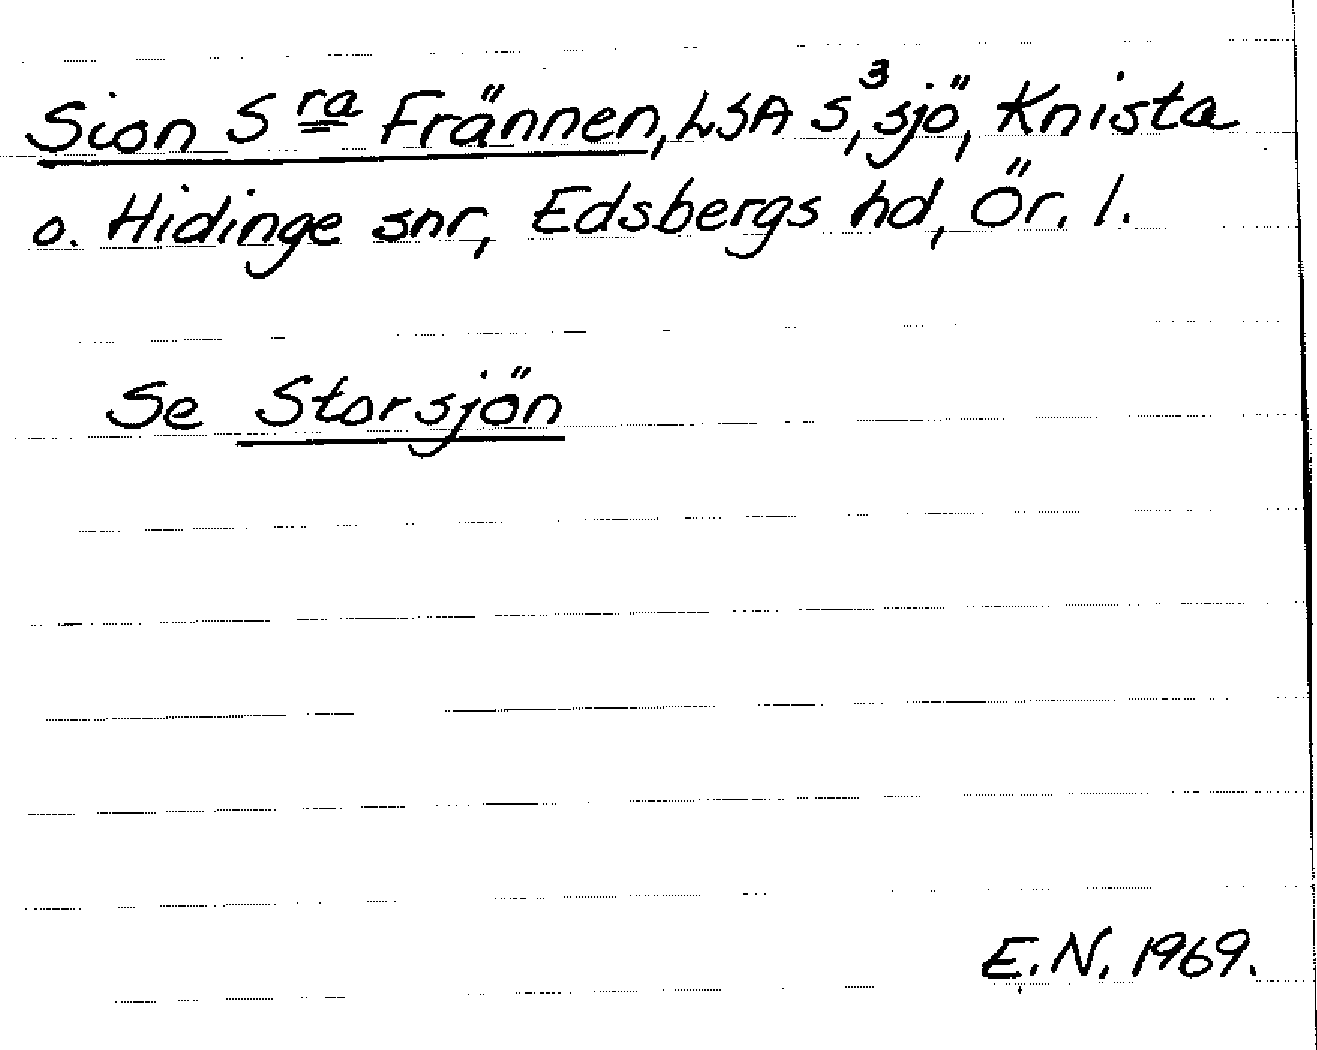 Sion Sra Frännen, LSA S³, sjö, Knista
o. Hidinge snr, Edsbergs hd, Ör. l.
Se Storsjön
E.N. 1969.